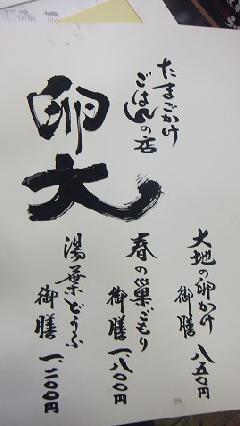 たまごかけ
ごはんの店
卵大
大地の卵かけ
御膳 八五〇円
春の巣ごもり
御膳 一、八〇〇円
湯葉どうふ
御膳 一、二〇〇円